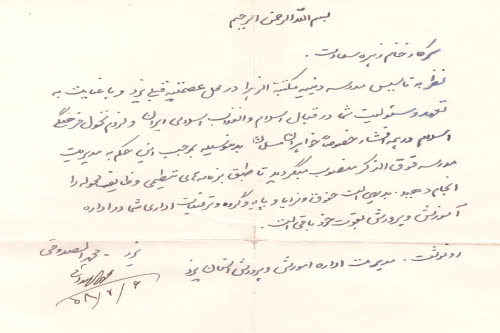 بسم الله الرحمن الرحیم
سرکار خانم زهره سعادت.
نظر به تأسیس مدرسه دینیه مکتبة الزهرا در محل یزد و با عنایت به
تعهد و مسئولیت شما در قبال اسلام و انقلاب اسلامی ایران و لزوم تحول فرهنگی
اسلام در همه اقشار خصوصاً خواهران مسلمان بدینوسیله بموجب این حکم به مدیریت
مدرسه فوق الذکر منصوب میگردید تا طبق برنامه‌ای تنظیمی وظایف محوله را
انجام دهید. بدیهی است حقوق و مزایا و پایه و گروه و ترفیعات اداری شما در اداره
آموزش و پرورش بقوت خود باقی است.
یزد - محمد الصدوقی
۵۸/۷/۶
رونوشت. مدیریت اداره آموزش و پرورش استان یزد